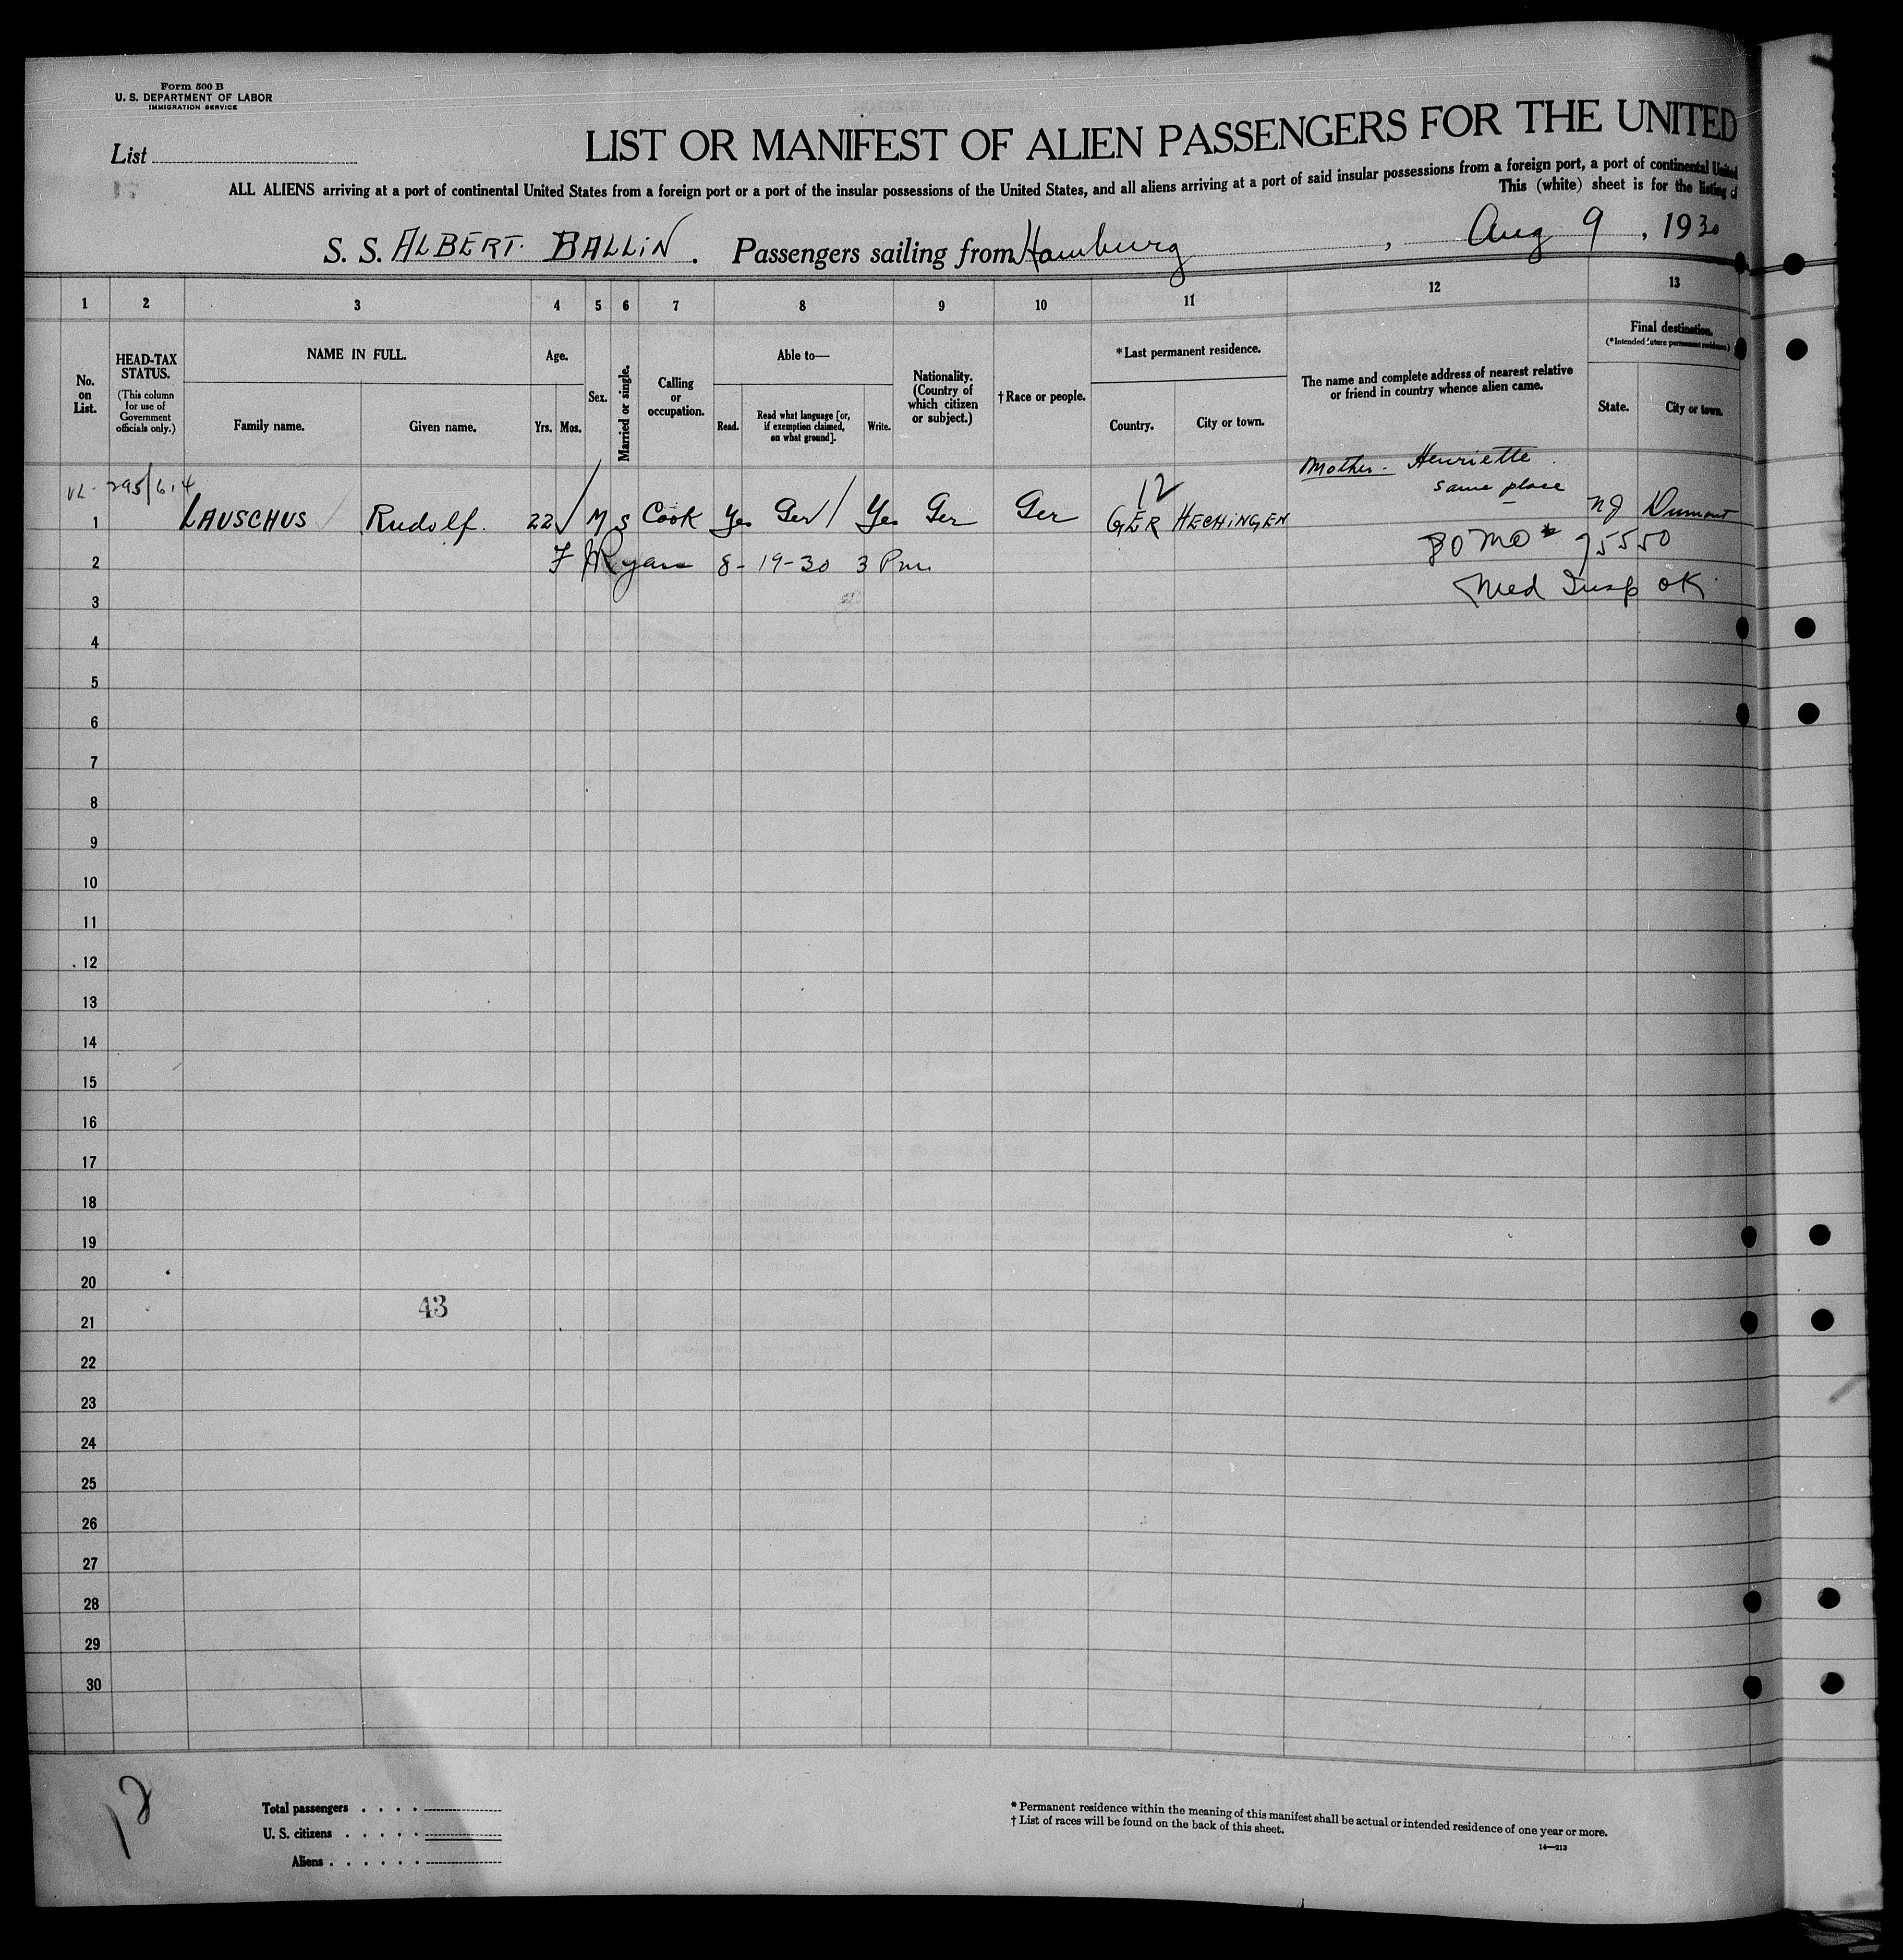 Form 500 B
U. S. DEPARTMENT OF LABOR
IMMIGRATION SERVICE
List
LIST OR MANIFEST OF ALIEN PASSENGERS FOR THE UNITED
ALL ALIENS arriving at a port of continental United States from a foreign port or a port of the insular possessions of the United States, and all aliens arriving at a port of said insular possessions from a foreign port, a port of continental United
This (white) sheet is for the listing of
S. S. ALBERT BALLIN. Passengers sailing from Hamburg, Aug 9, 1930
1 2 3 4 5 6 7 8 9 10 11 12 13
No. on List.
HEAD-TAX STATUS.
(This column for use of Government officials only.)
NAME IN FULL.
Family name. Given name.
Age.
Yrs. Mos.
Sex.
Married or single.
Calling or occupation.
Able to—
Read. Read what language [or, if exemption claimed, on what ground]. Write.
Nationality. (Country of which citizen or subject.)
† Race or people.
* Last permanent residence.
Country. City or town.
The name and complete address of nearest relative or friend in country whence alien came.
Final destination.
(*Intended future permanent residence.)
State. City or town.
Mother - Henriette
same place
295/614
12
1 LAUSCHUS Rudolf. 22 M S Cook Yes Ger Yes Ger Ger GER HECHINGEN NJ Dumont
2 Ryan 8-19-30 3 Pm.
3 Med Insp OK
4
5
6
7
8
9
10
11
12
13
14
15
16
17
18
19
20
43
21
22
23
24
25
26
27
28
29
30
Total passengers
U. S. citizens
Aliens
* Permanent residence within the meaning of this manifest shall be actual or intended residence of one year or more.
† List of races will be found on the back of this sheet.
14—213